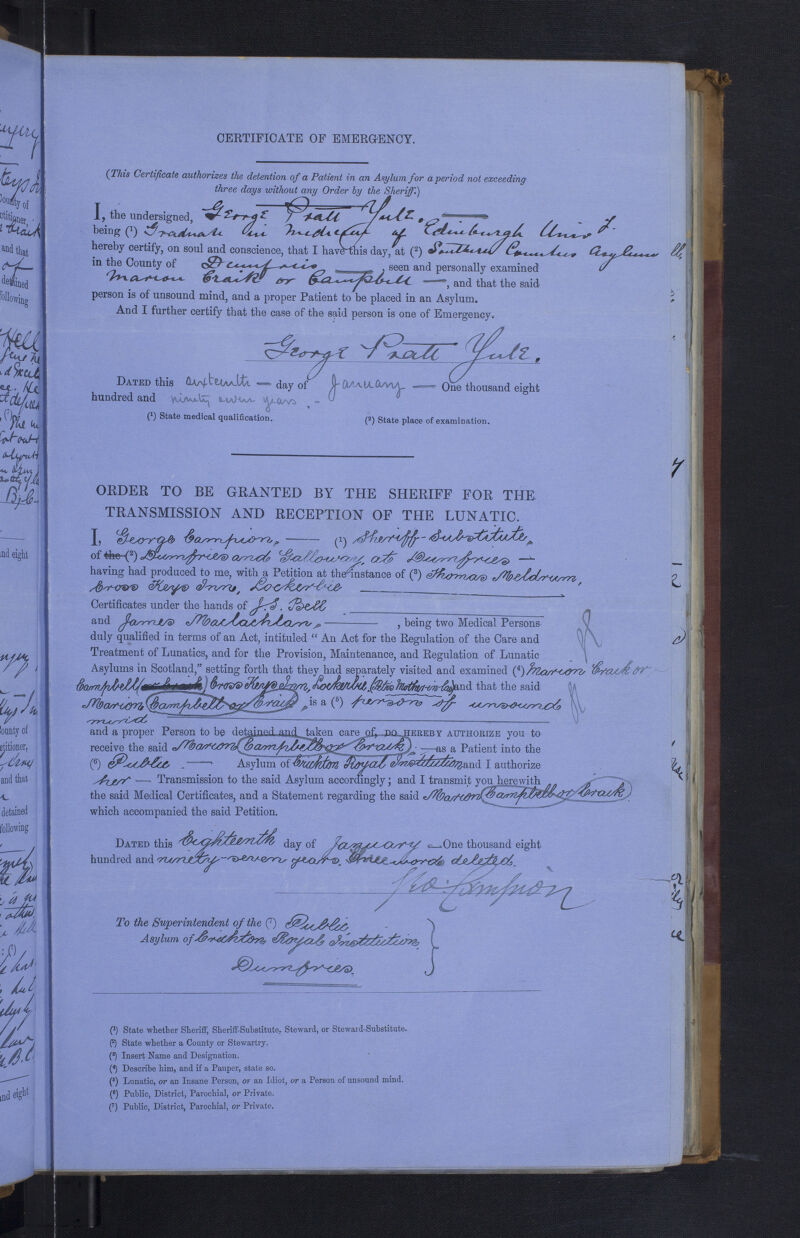 CERTIFICATE OF EMERGENCY.
(This Certificate authorizes the detention of a Patient in an Asylum for a period not exceeding
three days without any Order by the Sheriff.)
I, the undersigned, George Pratt Yule.
being (¹) Graduate in medicine of Edinburgh Univ
hereby certify, on soul and conscience, that I have this day, at (²) Southern Counties Asylum
in the County of Dumfries, seen and personally examined
Marion Craik or Campbell —, and that the said
person is of unsound mind, and a proper Patient to be placed in an Asylum.
And I further certify that the case of the said person is one of Emergency.
George Pratt Yule.
DATED this sixteenth — day of January — One thousand eight
hundred and ninety seven years. -
(¹) State medical qualification. (²) State place of examination.
ORDER TO BE GRANTED BY THE SHERIFF FOR THE
TRANSMISSION AND RECEPTION OF THE LUNATIC.
I, George Campion, — (¹) Sheriff-Substitute,
of the (²) Dumfries and Galloway, at Dumfries —
having had produced to me, with a Petition at the instance of (³) Thomas Meldrum,
Cross Keys Inn, Lockerbie
Certificates under the hands of J. S. Bell
and James Maclachlan, —, being two Medical Persons
duly qualified in terms of an Act, intituled “ An Act for the Regulation of the Care and
Treatment of Lunatics, and for the Provision, Maintenance, and Regulation of Lunatic
Asylums in Scotland,” setting forth that they had separately visited and examined (⁴) Marion Craik or
Campbell (or Craik) Cross Keys Inn, Lockerbie, (Petrs Mother in law) and that the said
Marion Campbell or Craik, is a (⁵) person of unsound
mind
and a proper Person to be detained and taken care of, DO HEREBY AUTHORIZE you to
receive the said Marion Campbell or Craik, — as a Patient into the
(⁶) Public. — Asylum of Crichton Royal Institution and I authorize
her — Transmission to the said Asylum accordingly; and I transmit you herewith
the said Medical Certificates, and a Statement regarding the said Marion Campbell or Craik.
which accompanied the said Petition.
DATED this Eighteenth day of January — One thousand eight
hundred and ninety-seven years. Three words deleted.
Geo: Campion
To the Superintendent of the (⁷) Public,
Asylum of Crichton Royal Institution,
Dumfries.
(¹) State whether Sheriff, Sheriff-Substitute, Steward, or Steward-Substitute.
(²) State whether a County or Stewartry.
(³) Insert Name and Designation.
(⁴) Describe him, and if a Pauper, state so.
(⁵) Lunatic, or an Insane Person, or an Idiot, or a Person of unsound mind.
(⁶) Public, District, Parochial, or Private.
(⁷) Public, District, Parochial, or Private.